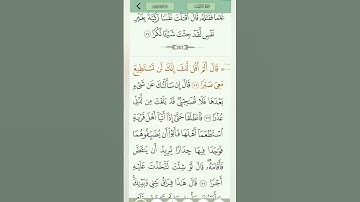 غُلَامًا فَقَتَلَهُۥ قَالَ أَقَتَلْتَ نَفْسًا زَكِيَّةًۢ بِغَيْرِ
نَفْسٍ لَّقَدْ جِئْتَ شَيْـًٔا نُّكْرًا ٧٤
قَالَ أَلَمْ أَقُل لَّكَ إِنَّكَ لَن تَسْتَطِيعَ
مَعِىَ صَبْرًا ٧٥ قَالَ إِن سَأَلْتُكَ عَن شَىْءٍۭ
بَعْدَهَا فَلَا تُصَـٰحِبْنِى قَدْ بَلَغْتَ مِن لَّدُنِّى
عُذْرًا ٧٦ فَٱنطَلَقَا حَتَّىٰٓ إِذَآ أَتَيَآ أَهْلَ قَرْيَةٍ
ٱسْتَطْعَمَآ أَهْلَهَا فَأَبَوْا۟ أَن يُضَيِّفُوهُمَا
فَوَجَدَا فِيهَا جِدَارًا يُرِيدُ أَن يَنقَضَّ
فَأَقَامَهُۥ قَالَ لَوْ شِئْتَ لَتَّخَذْتَ عَلَيْهِ
أَجْرًا ٧٧ قَالَ هَـٰذَا فِرَاقُ بَيْنِى وَبَيْنِكَ